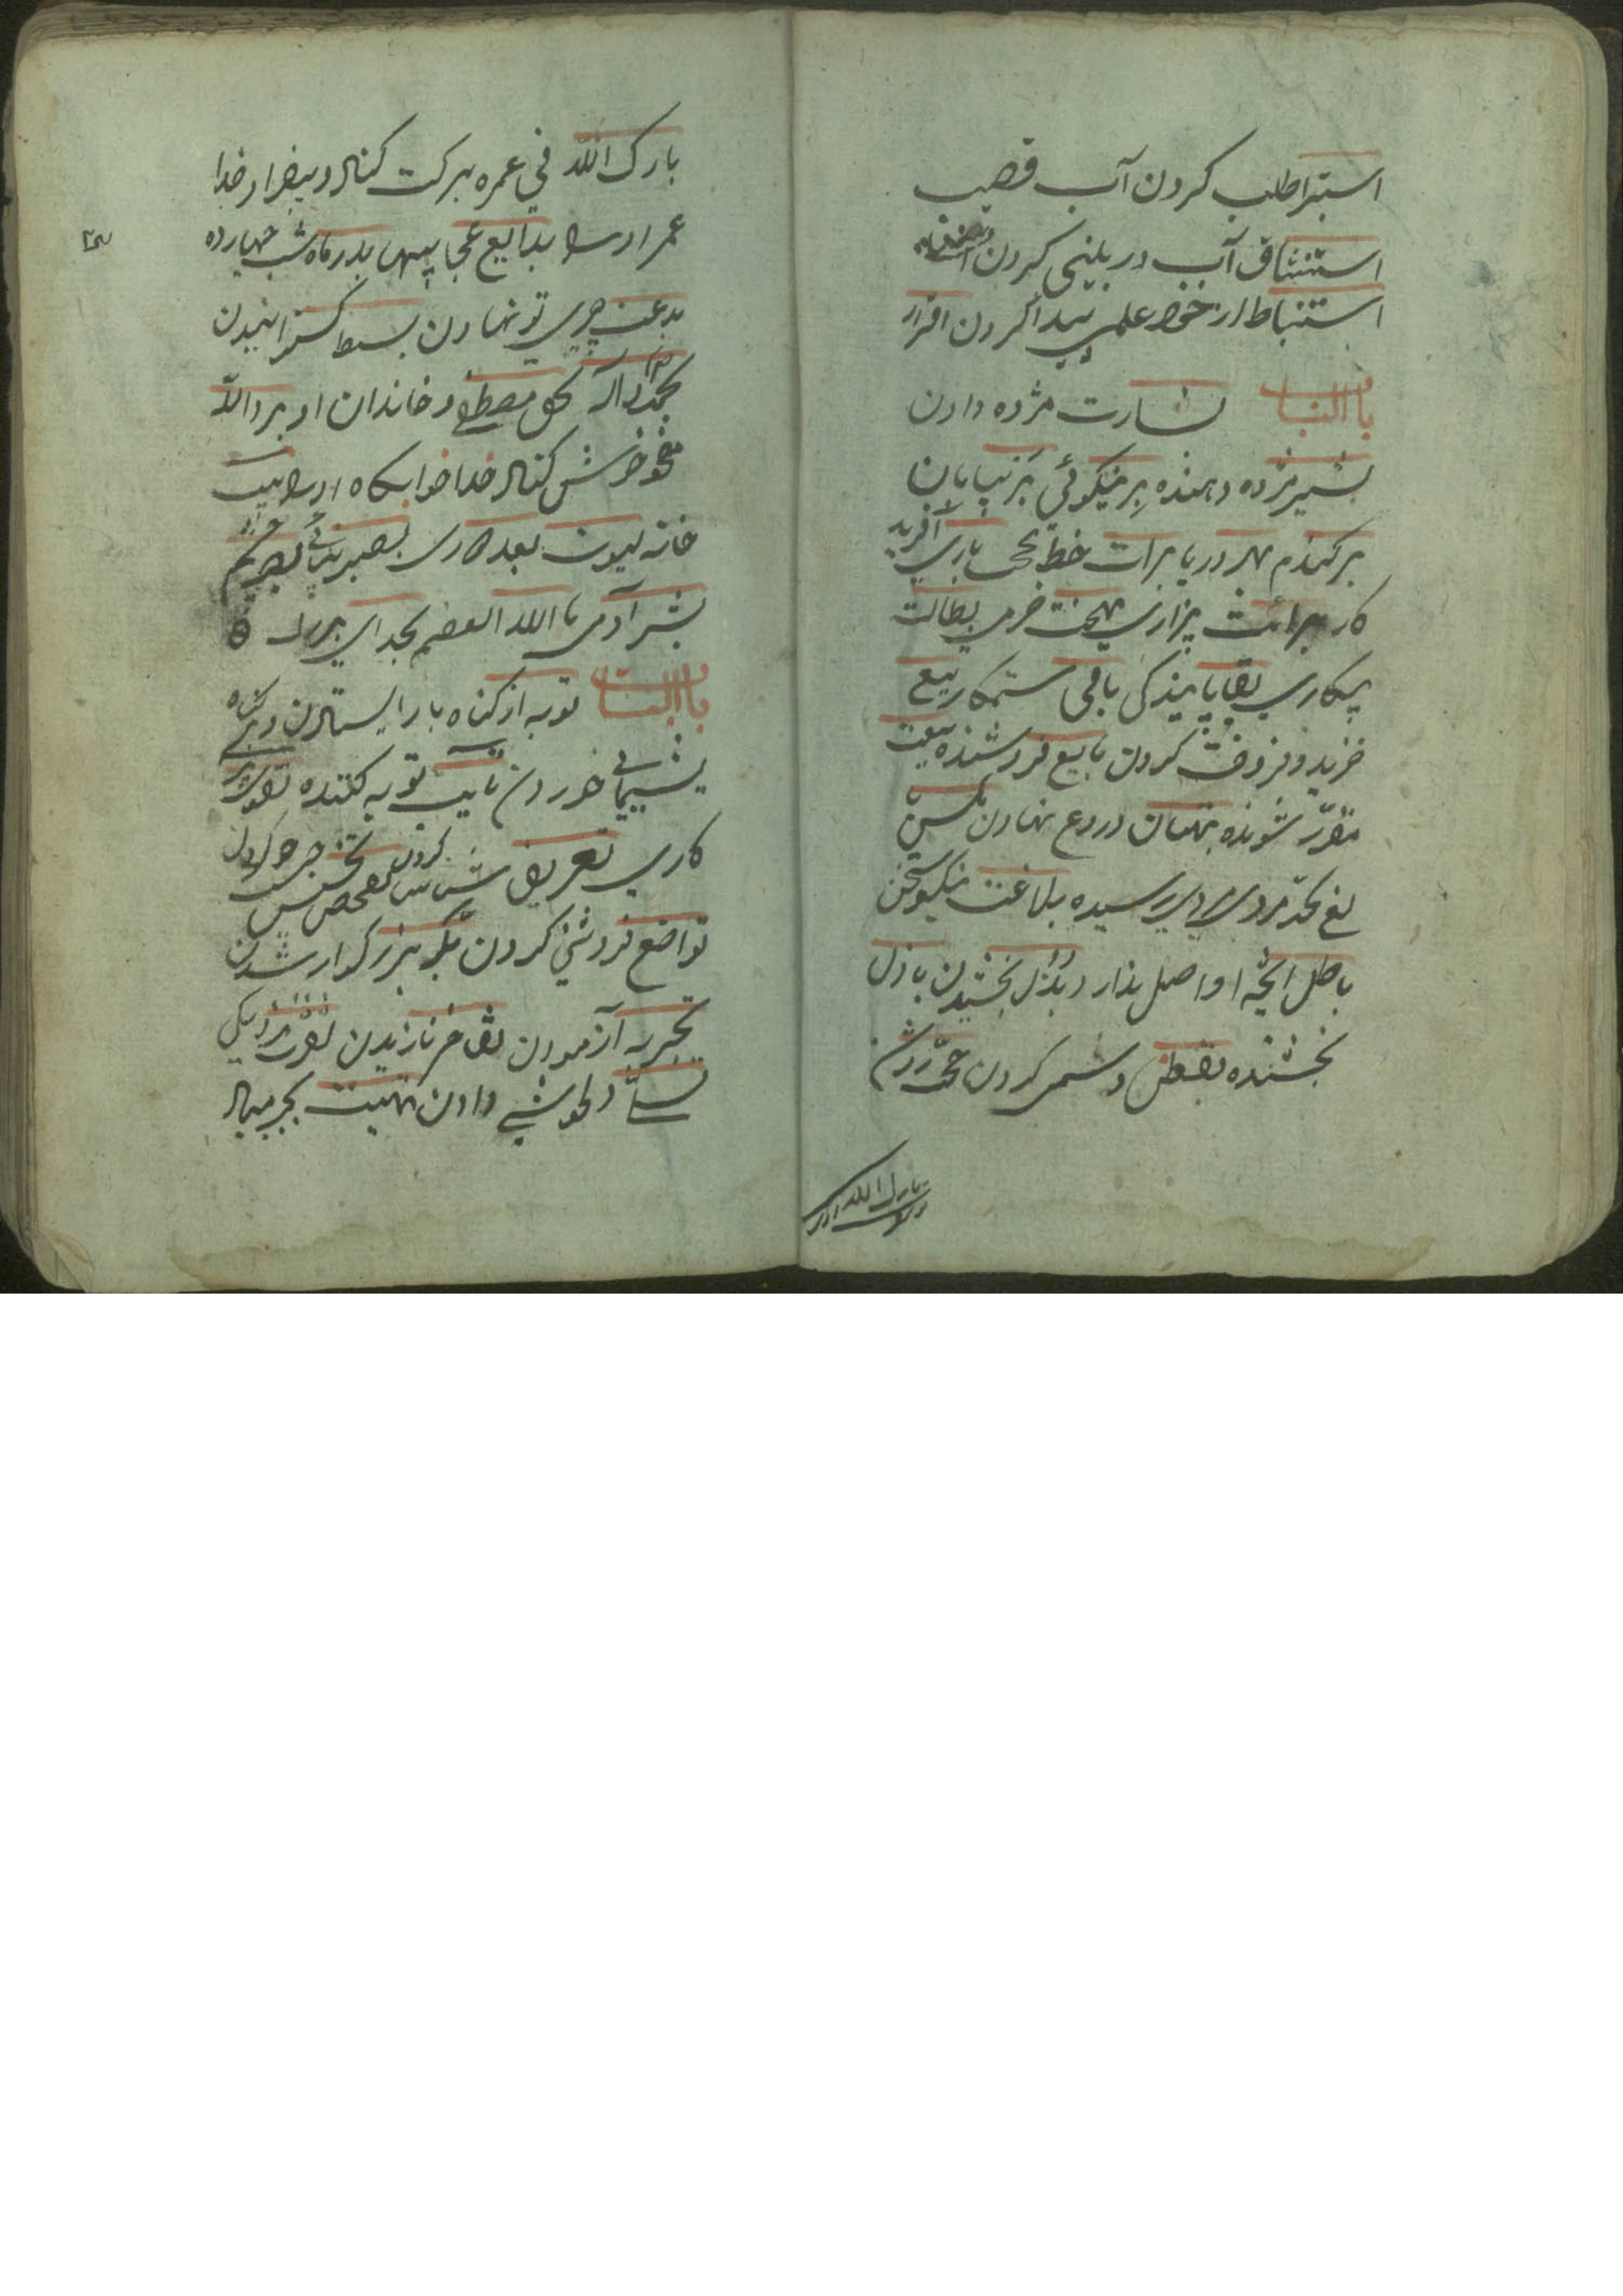 استبرا طلب کردن آب قصیب
استنشاق آب در بینی کردن
استنباط از خود علمی پیدا کردن اقرار
باب البا بشارت مژده دادن
بشیر مژده دهنده بر نیکوئی بر بیابان
بر گندم بحر دریا برات خط باری آفریدکار
برائت بیزاری بهجت خرمی بطالت
بیکاری بقا پایندگی باقی بیع
خرید و فروخت کردن بایع فروشنده بیعت
مقرر شونده بهتان دروغ نهادن
بلغ بحد مردی رسیده بلاغت نیکو سخن
باطل آنچه او اصل ندارد بذل بخشیدن باذل
بخشنده بغض دشمنی کردن
بارک الله
بارک الله فی عمره برکت کناد و بیفزاد خدا
عمر او را بدایع عجایبها بدر ماه شب چهارده
بدعت چیزی نو نهادن بسط گسترانیدن
بمحمد و آله بحق مصطفی و خاندان او برد الله
مضجعه خوش کناد خدا خوابگاه او را بیت
خانه بیوت بعد دوری بصیر بینا بصر چشم
بشر آدمی بالله العظیم بخدای بزرگ
باب التا توبه از گناه باز ایستادن
پشیمانی خوردن تایب توبه کننده
کاری تعریف شناسا کردن تفحص تجسس
تواضع فروتنی کردن تکبر بزرگوار شدن
تجربه آزمودن تفاخر نازیدن تقرب نزدیکی
تسلی دلخوشی دادن تهنیت